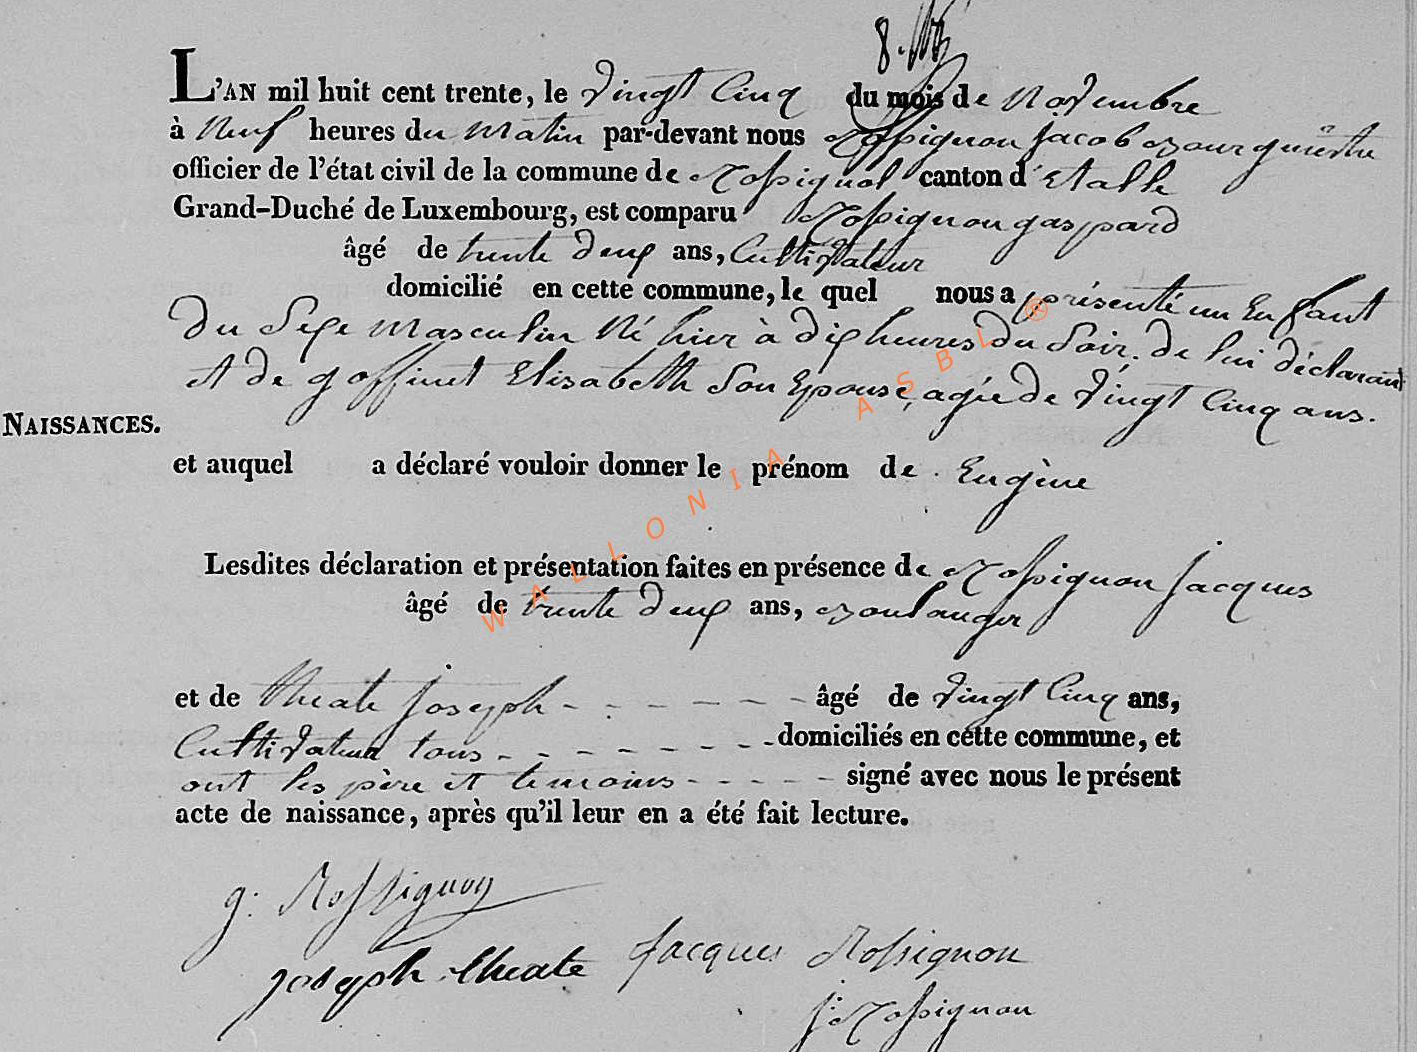 8.
L'AN mil huit cent trente, le vingt Cinq du mois de Novembre
à Neuf heures du Matin par-devant nous Rossignon Jacob Bourguemestre
officier de l'état civil de la commune de Rossignol canton d'Etalle
Grand-Duché de Luxembourg, est comparu Rossignon gaspard
âgé de trente deux ans, Cultivateur
domicilié en cette commune, le quel nous a présenté un Enfant
du Sexe Masculin Né hier à dix heures du Soir. de lui déclarant
et de goffinet Elisabeth Son Epouse, agée de vingt Cinq ans.
NAISSANCES.
et auquel a déclaré vouloir donner le prénom de . Eugène
Lesdites déclaration et présentation faites en présence de Rossignon Jacques
âgé de trente deux ans, Boulanger
et de theate Joseph - - - - - - âgé de vingt Cinq ans,
Cultivateur tous - - - - - - - - domiciliés en cette commune, et
ont les père et temoins - - - - - signé avec nous le présent
acte de naissance, après qu'il leur en a été fait lecture.
g: Rossignon
Joseph theate Jacques Rossignon
J: Rossignon
WALLONIA ASBL ®